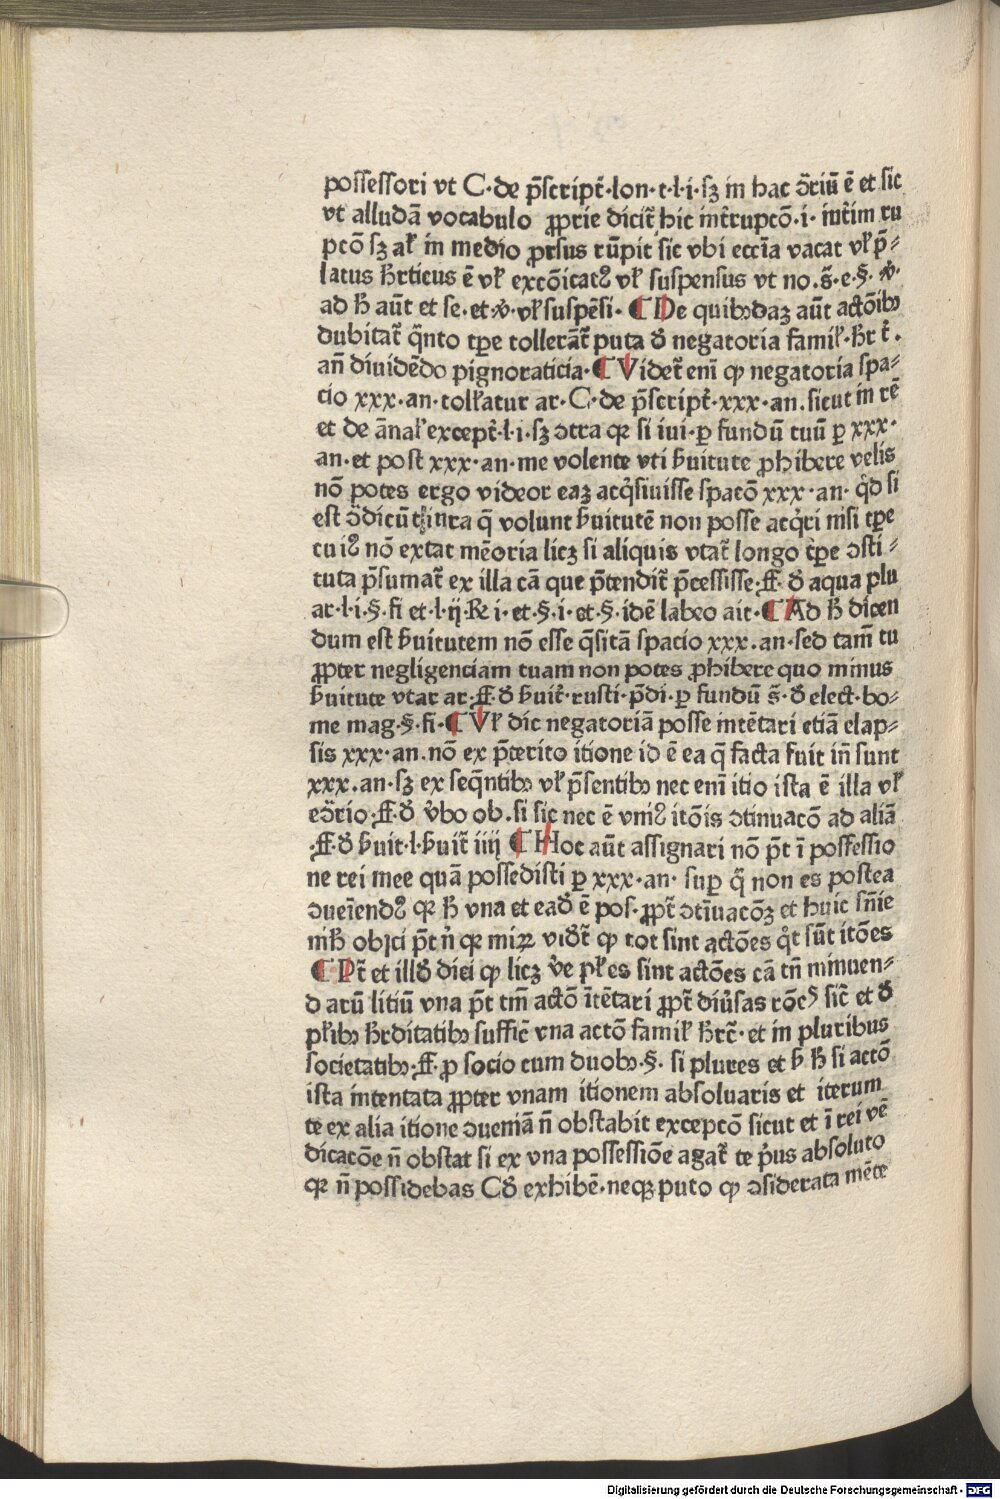 possessori vt C·de p̄script̄·lon·t·l·i·sꝫ in hac ↄ̄riū ē et sic
vt alludā vocabulo ꝓprie dicit̄ hic int̄rupcō·i·iut̄im ru
pcō sꝫ ał in medio ꝓrsus rūpit sic vbi ecc̄ia vacat vł p̄⸗
latus h̄rticus ē vł excōicatꝰ vł suspensus vt no·s̄·e·§·
ad h̄ aūt et se·et·vł suspēsi· ¶ De quibꝰdaꝫ aūt actōibꝰ
dubitat̄ q̄nto tꝑe tollerāt̄ puta đ negatoria famił·h̄r t̄·
an̄ diuidēdo pignoraticia·¶ Videt̄ eni ꝙ negatoria spa⸗
cio xxx·an·tolłatur ar·C·de p̄script̄·xxx·an·sicut in rē
et de ānał except̄·l·i·sꝫ ↄtra qꝛ si iui·ꝑ fundū tuū ꝑ xxx·
an·et post xxx·an·me volente vti ƀuitute ꝓhibere velis
nō potes ergo videor eaꝫ acq̇siuisse spacō xxx·an· q̇d si
est ↄ̄dicū iura q̄ volunt ƀuitutē non posse acq̇ri nisi tꝑe
cuiꝰ nō extat mēoria licꝫ si aliquis vtat̄ longo tꝑe ↄsti⸗
tuta p̄sumat̄ ex illa cā que p̄tendit̄ p̄cessisse·ff·đ aqua plu
ar·l·i·§·fi et·l·ij·℟ i·et·§·i·et·§·idē labeo ait·¶ Ad h̄ dicen
dum est ƀuitutem nō esse q̄sitā spacio xxx·an·sed tam̄ tu
ꝓpter negligenciam tuam non potes ꝓhibere quo minus
ƀuitute vtar ar·ff·đ ƀuit̄·rusti·p̄di·ꝑ fundū s̄·đ elect·bo⸗
me mag·§·fi·¶ Vł dic negatoriā posse intētari etiā elap⸗
sis xxx·an·nō ex p̄terito itione id ē ea q̄ facta fuit in̄ sunt
xxx·an·sꝫ ex seq̄ntibꝰ vł p̄sentibꝰ nec eni itio ista ē illa vł
eↄ̄rio·ff·đ v̄bo ob·si sic nec ē vniꝰ itōis ↄtinuacō ad aliā
·ff·đ ƀuit·l·ƀuit̄ iiij ¶ Hoc aūt assignari nō p̄t ī possessio
ne rei mee quā possedisti ꝑ xxx·an· suꝑ q̄ non es postea
ↄueīendꝰ qꝛ h̄ vna et eađ ē pos·ꝓpt̄ ↄtīuacōꝫ et huic sn̄ie
m̄h̄ obijci p̄t n̄ qꝛ miꝝ viđt̄ ꝙ tot sint actōes q̊t sūt itōes
¶ Pt̄ et illđ dici ꝙ licꝫ v̄e płes sint actōes cā tn̄ minuen⸗
d arū litiū vna p̄t tm̄ actō ītētari ꝓpt̄ diūsas rōcꝰ sic̄ et đ
płibꝰ h̄rditatibꝰ suffic̄ vna actō famił h̄rc̄·et in pluribus
societatibꝰ·ff·ꝓ socio cum duobꝰ·§· si plures et ƀ h̄ si actō
ista intentata ꝓpter vnam itionem absoluaris et iterum
te ex alia itione ↄueniā n̄ obstabit excepcō sicut et ī rei vē
dicacōe n̄ obstat si ex vna possessiōe agat̄ te p̄us absoluto
qꝛ n̄ possidebas Cđ exhibē·neqꝫ puto ꝙ ↄsiderata mēte
Digitalisierung gefördert durch die Deutsche Forschungsgemeinschaft · DFG